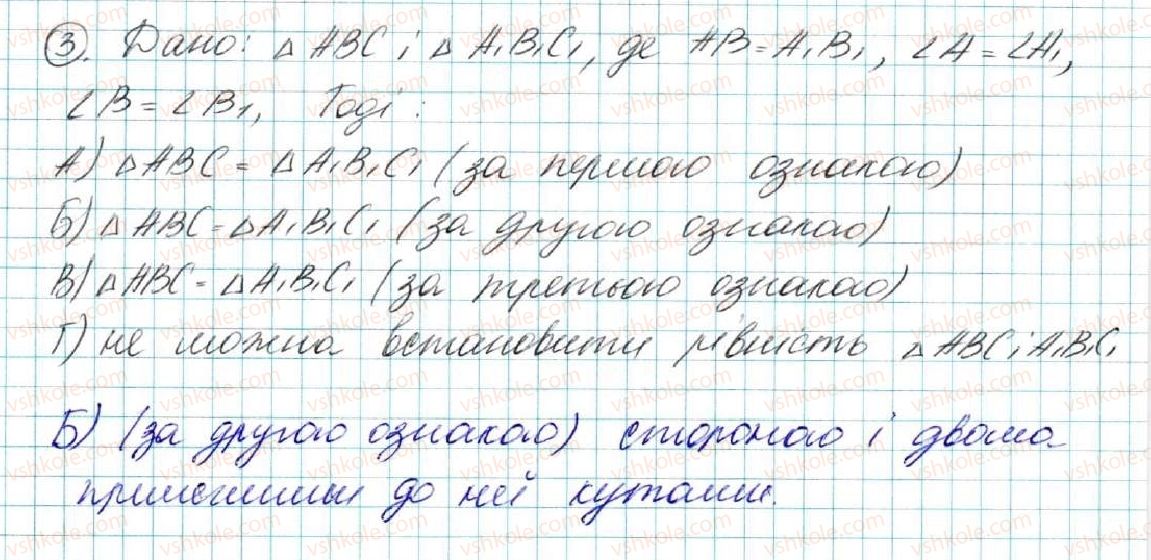 ③. Дано: △ABC і △A₁B₁C₁, де AB = A₁B₁, ∠A = ∠A₁,
∠B = ∠B₁, Тоді:
А) △ABC = △A₁B₁C₁ (за першою ознакою)
Б) △ABC = △A₁B₁C₁ (за другою ознакою)
В) △ABC = △A₁B₁C₁ (за третьою ознакою)
Г) не можна встановити рівність △ABC і A₁B₁C₁
Б) (за другою ознакою) стороною і двома
прилеглими до неї кутами.